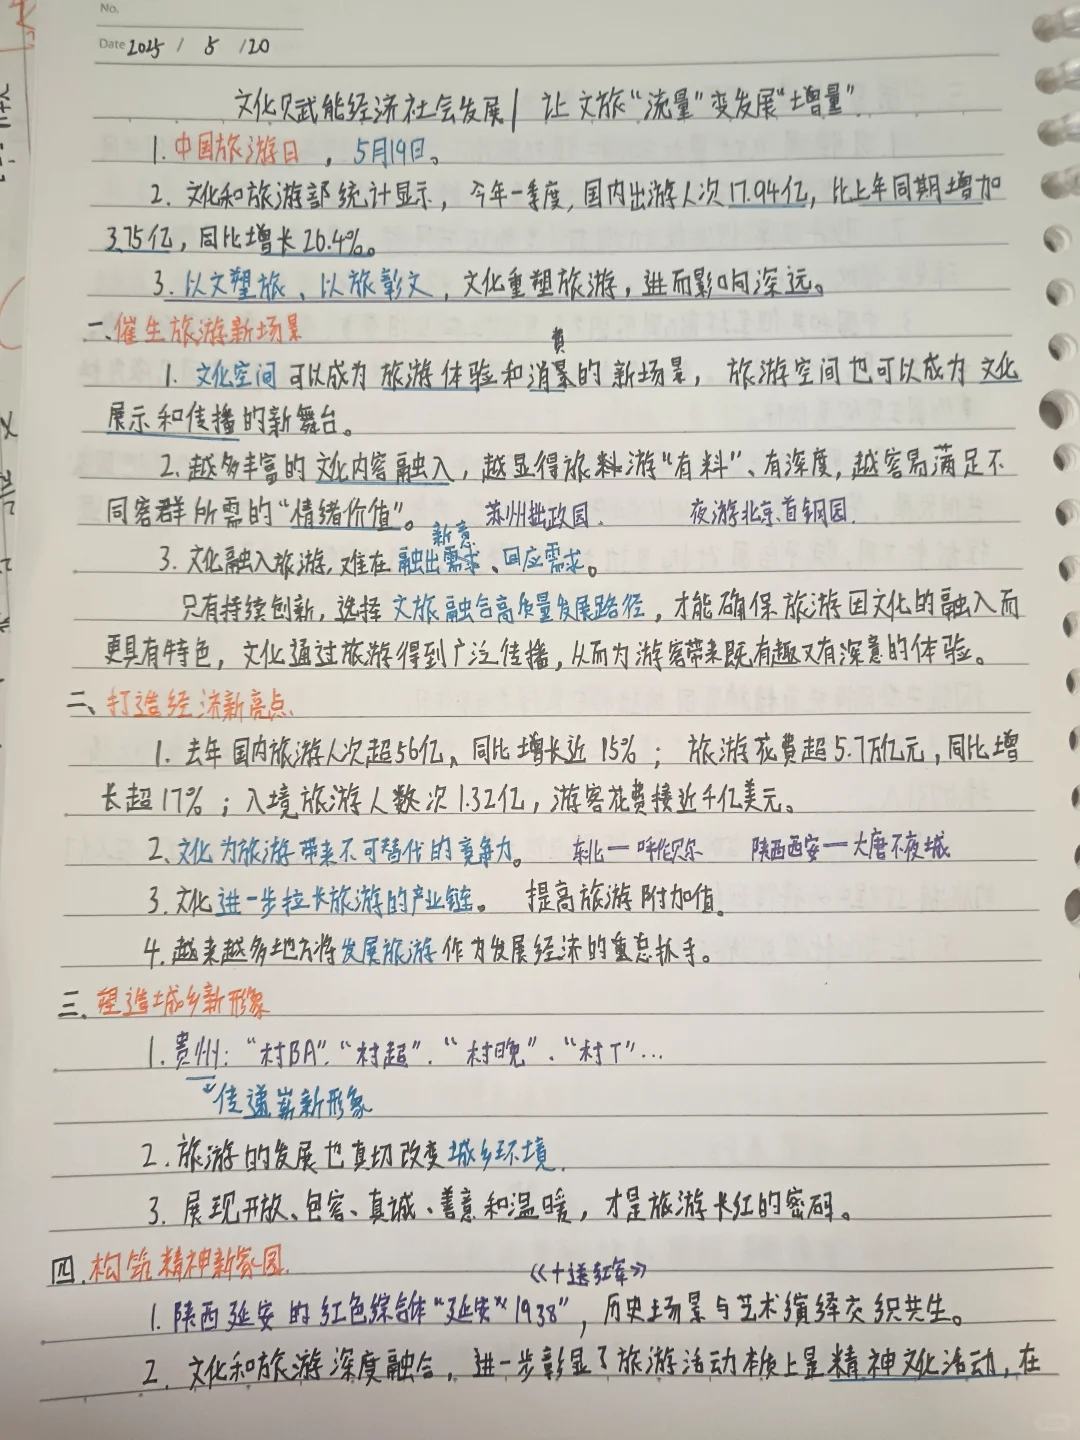 No.
Date 2025 / 5 / 20
文化赋能经济社会发展| 让文旅“流量”变发展“增量”
1. 中国旅游日，5月19日。
2. 文化和旅游部统计显示，今年一季度，国内出游人次17.94亿，比上年同期增加
3.75亿，同比增长26.4%。
3. 以文塑旅、以旅彰文，文化重塑旅游，进而影响深远。
一、催生旅游新场景
费
1. 文化空间可以成为旅游体验和消的新场景，旅游空间也可以成为文化
展示和传播的新舞台。
2. 越多丰富的文化内容融入，越显得旅游“有料”、有深度，越容易满足不
同客群所需的“情绪价值”。 苏州拙政园. 夜游北京首钢园.
新意
3. 文化融入旅游，难在融出需求、回应需求。
只有持续创新，选择文旅融合高质量发展路径，才能确保旅游因文化的融入而
更具有特色，文化通过旅游得到广泛传播，从而为游客带来既有趣又有深意的体验。
二、打造经济新亮点.
1. 去年国内旅游人次超56亿、同比增长近15%；旅游花费超5.7万亿元，同比增
长超17%；入境旅游人数次1.32亿，游客花费接近千亿美元。
2. 文化为旅游带来不可替代的竞争力。 东北—呼伦贝尔 陕西西安—大唐不夜城
3. 文化进一步拉长旅游的产业链。 提高旅游附加值.
4. 越来越多地方将发展旅游作为发展经济的重点抓手。
三、塑造城乡新形象
1. 贵州：“村BA”、“村超”、“村晚”、“村T”…
传递崭新形象
2. 旅游的发展也真切改变城乡环境.
3. 展现开放、包容、真诚、善意和温暖，才是旅游长红的密码。
四、构筑精神新家园.
《十送红军》
1. 陕西延安的红色综合体“延安1938”，历史场景与艺术演绎交织共生。
2. 文化和旅游深度融合，进一步彰显了旅游活动本质上是精神文化活动，在